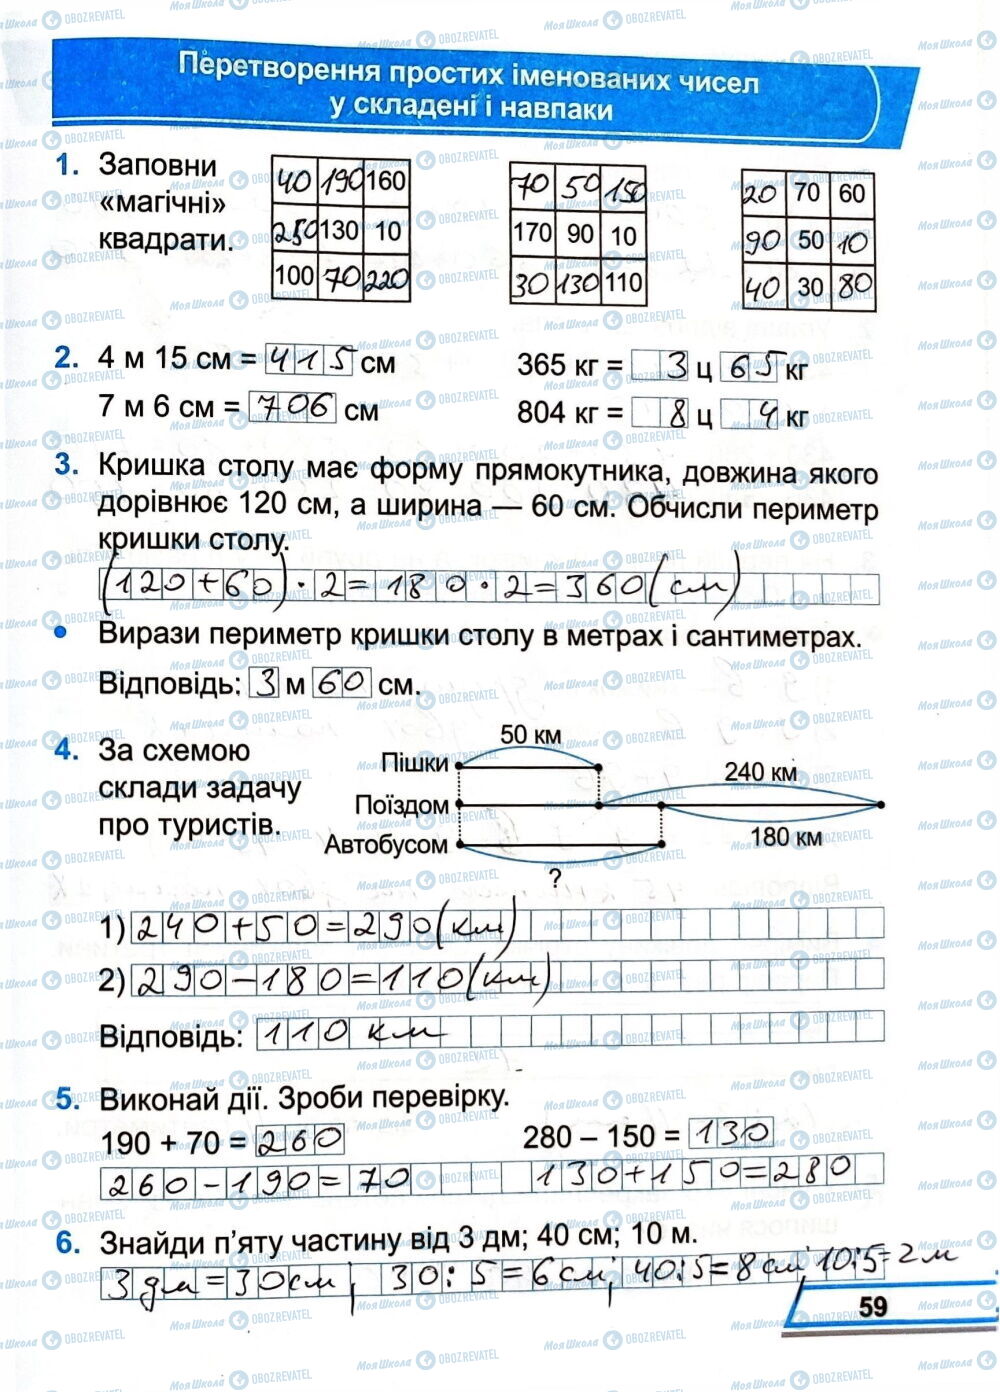 Перетворення простих іменованих чисел
у складені і навпаки
1. Заповни «магічні» квадрати.
40 190 160
250 130 10
100 70 220
70 50 150
170 90 10
30 130 110
20 70 60
90 50 10
40 30 80
2. 4 м 15 см = 415 см
365 кг = 3 ц 65 кг
7 м 6 см = 706 см
804 кг = 8 ц 4 кг
3. Кришка столу має форму прямокутника, довжина якого
дорівнює 120 см, а ширина — 60 см. Обчисли периметр
кришки столу.
(120+60)·2=180·2=360(см)
• Вирази периметр кришки столу в метрах і сантиметрах.
Відповідь: 3 м 60 см.
4. За схемою
склади задачу
про туристів.
50 км
Пішки
240 км
Поїздом
180 км
Автобусом
?
1) 240+50=290(км)
2) 290-180=110(км)
Відповідь: 110 км
5. Виконай дії. Зроби перевірку.
190 + 70 = 260
280 – 150 = 130
260-190=70
130+150=280
6. Знайди п’яту частину від 3 дм; 40 см; 10 м.
3дм=30см; 30:5=6см; 40:5=8см, 10:5=2м
59